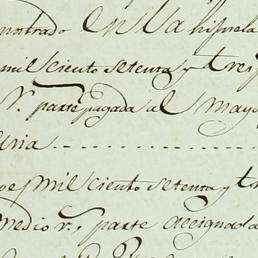 mostrado en la hijuela
mil ciento setenta y tres
r.^s parte pagada al mayo
uria
mil ciento setenta y tr
medio r.^s parte accignada